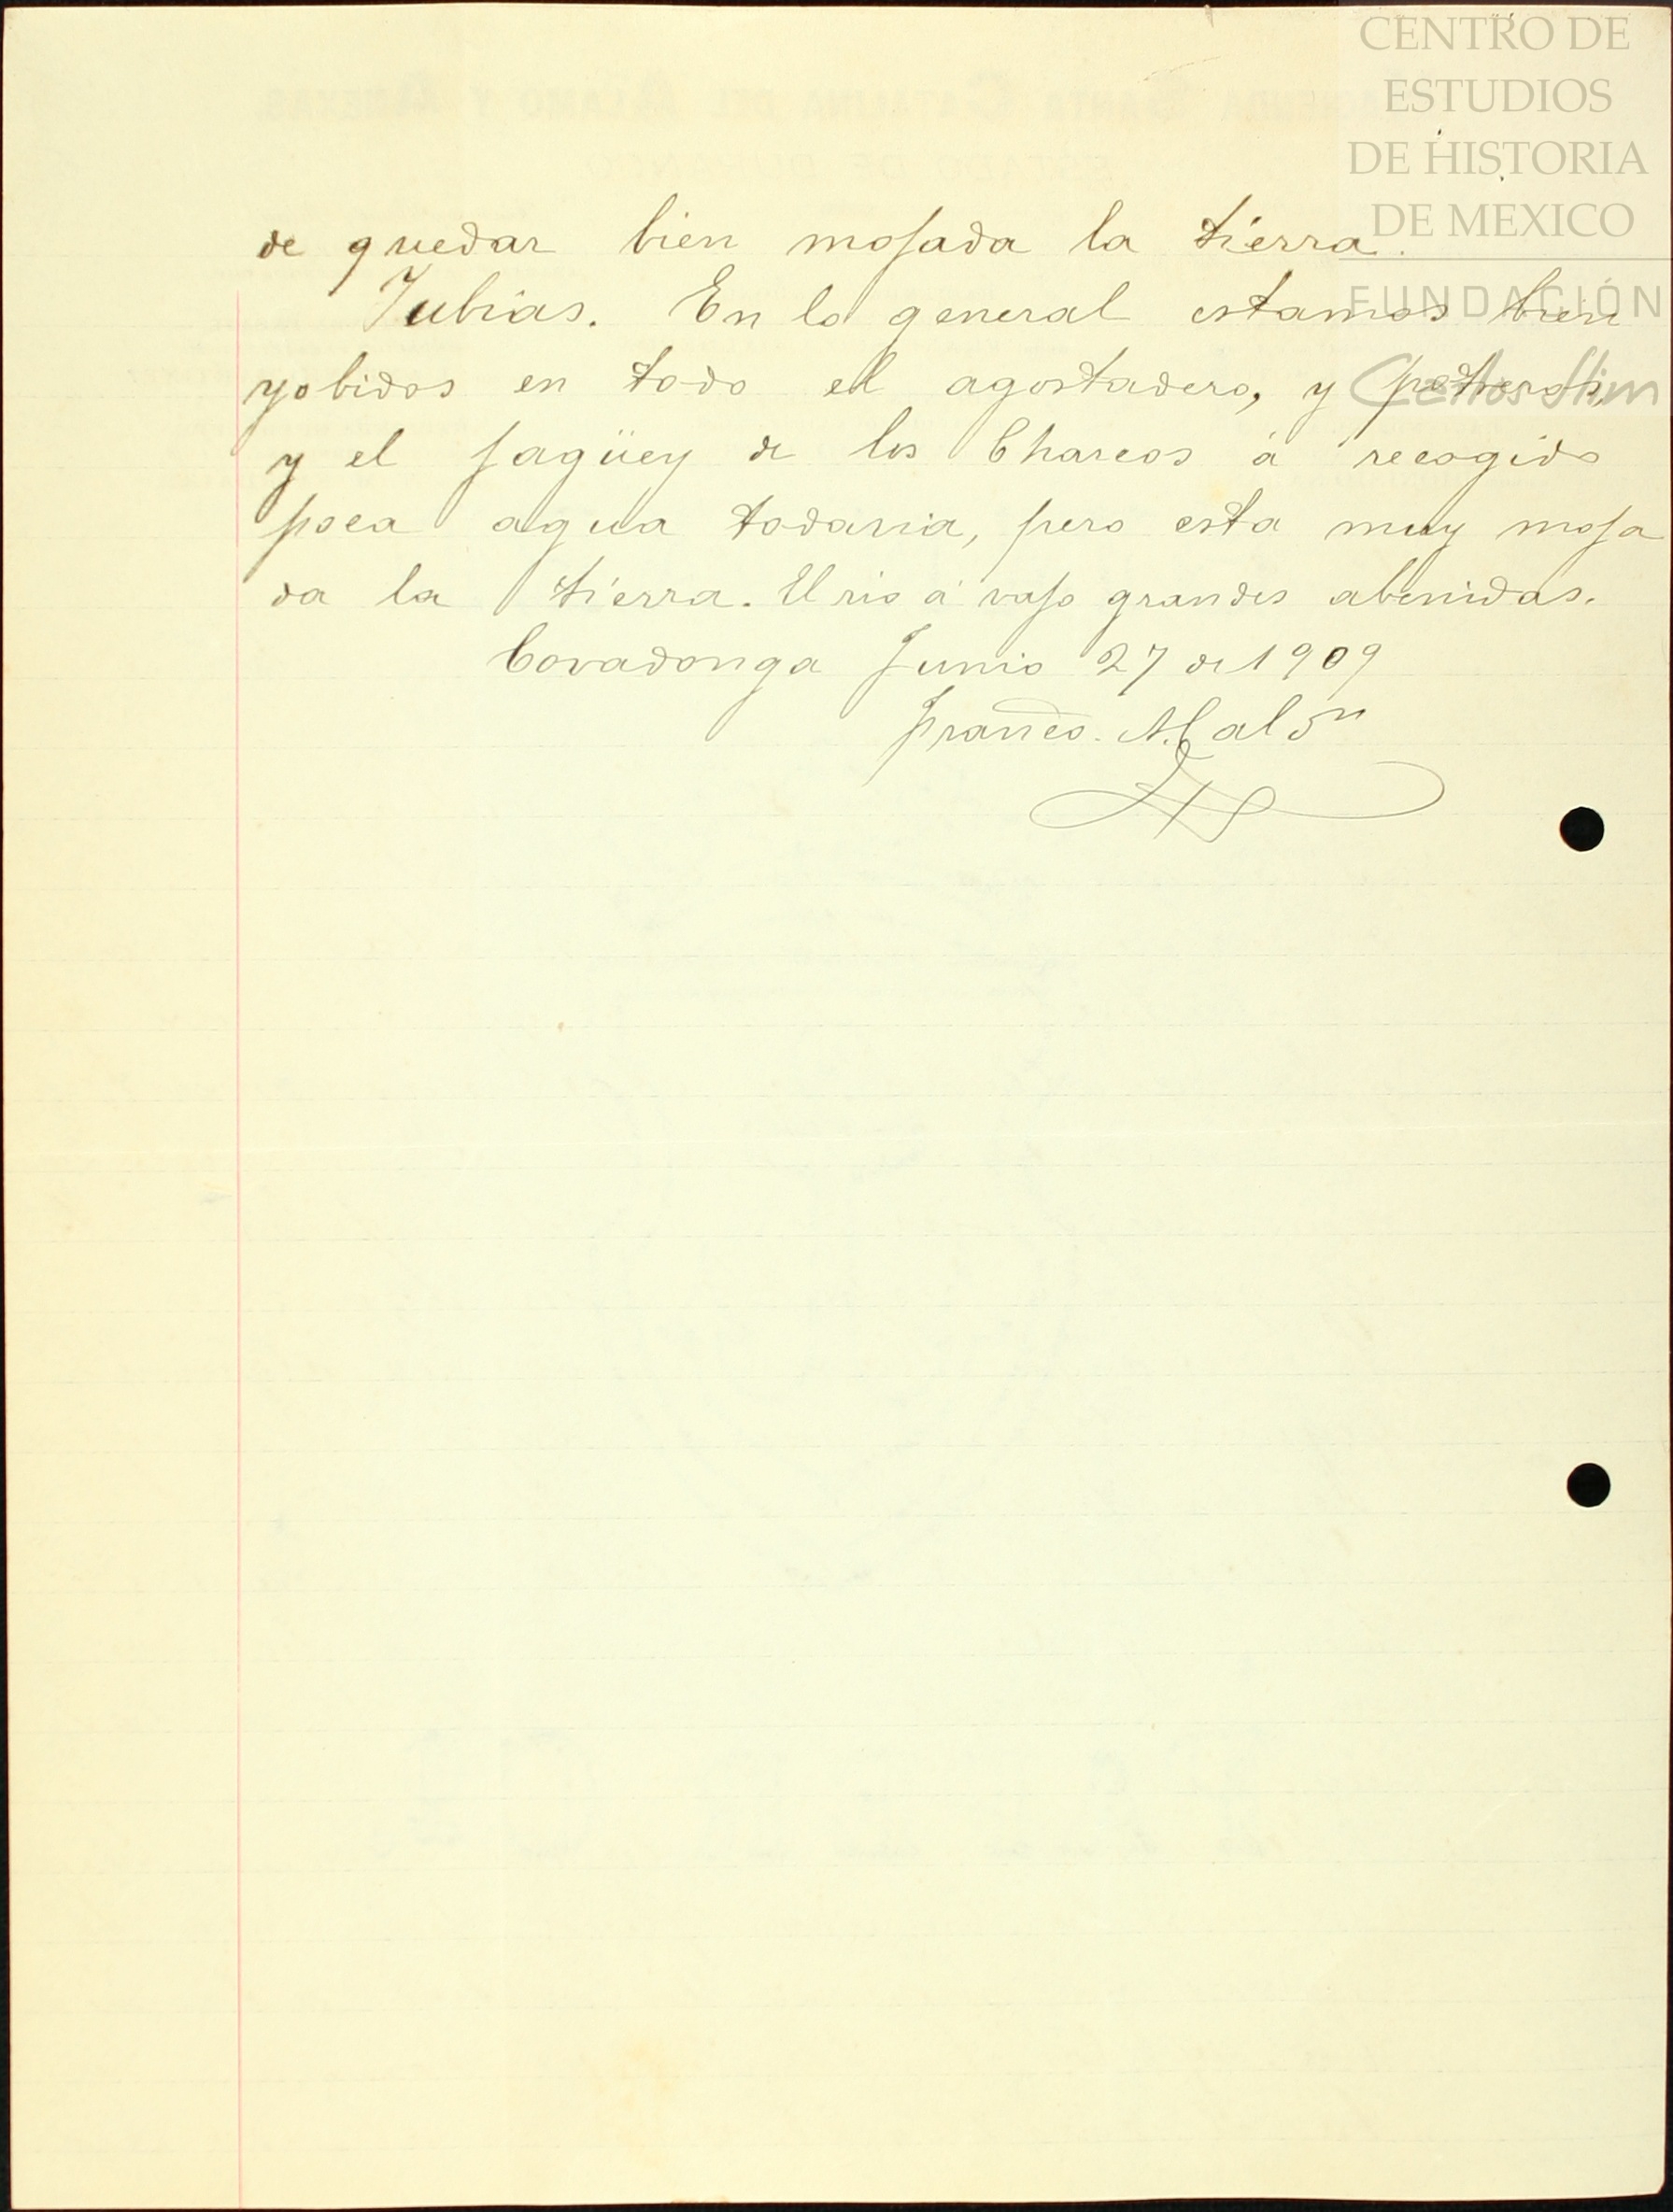 CENTRO DE
ESTUDIOS
DE HISTORIA
DE MEXICO
FUNDACIÓN
Carlos Slim
de quedar bien mojada la tierra.
Yubias. En lo general estamos bien
yobidos en todo el agostadero, y potreros,
y el jagüey de los Charcos á recogido
poca agua todavia, pero esta muy moja
da la tierra. El rio á vajo grandes abenidas.
Covadonga Junio 27 de 1909